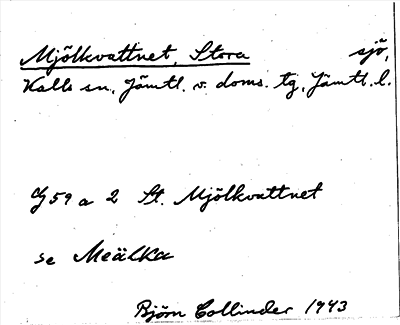 Mjölkvattnet, Stora sjö,
Kalls sn, Jämtl. v. doms. tg, Jämtl. l.
G 59 a 2 St. Mjölkvattnet
se Meälka
Björn Collinder 1943